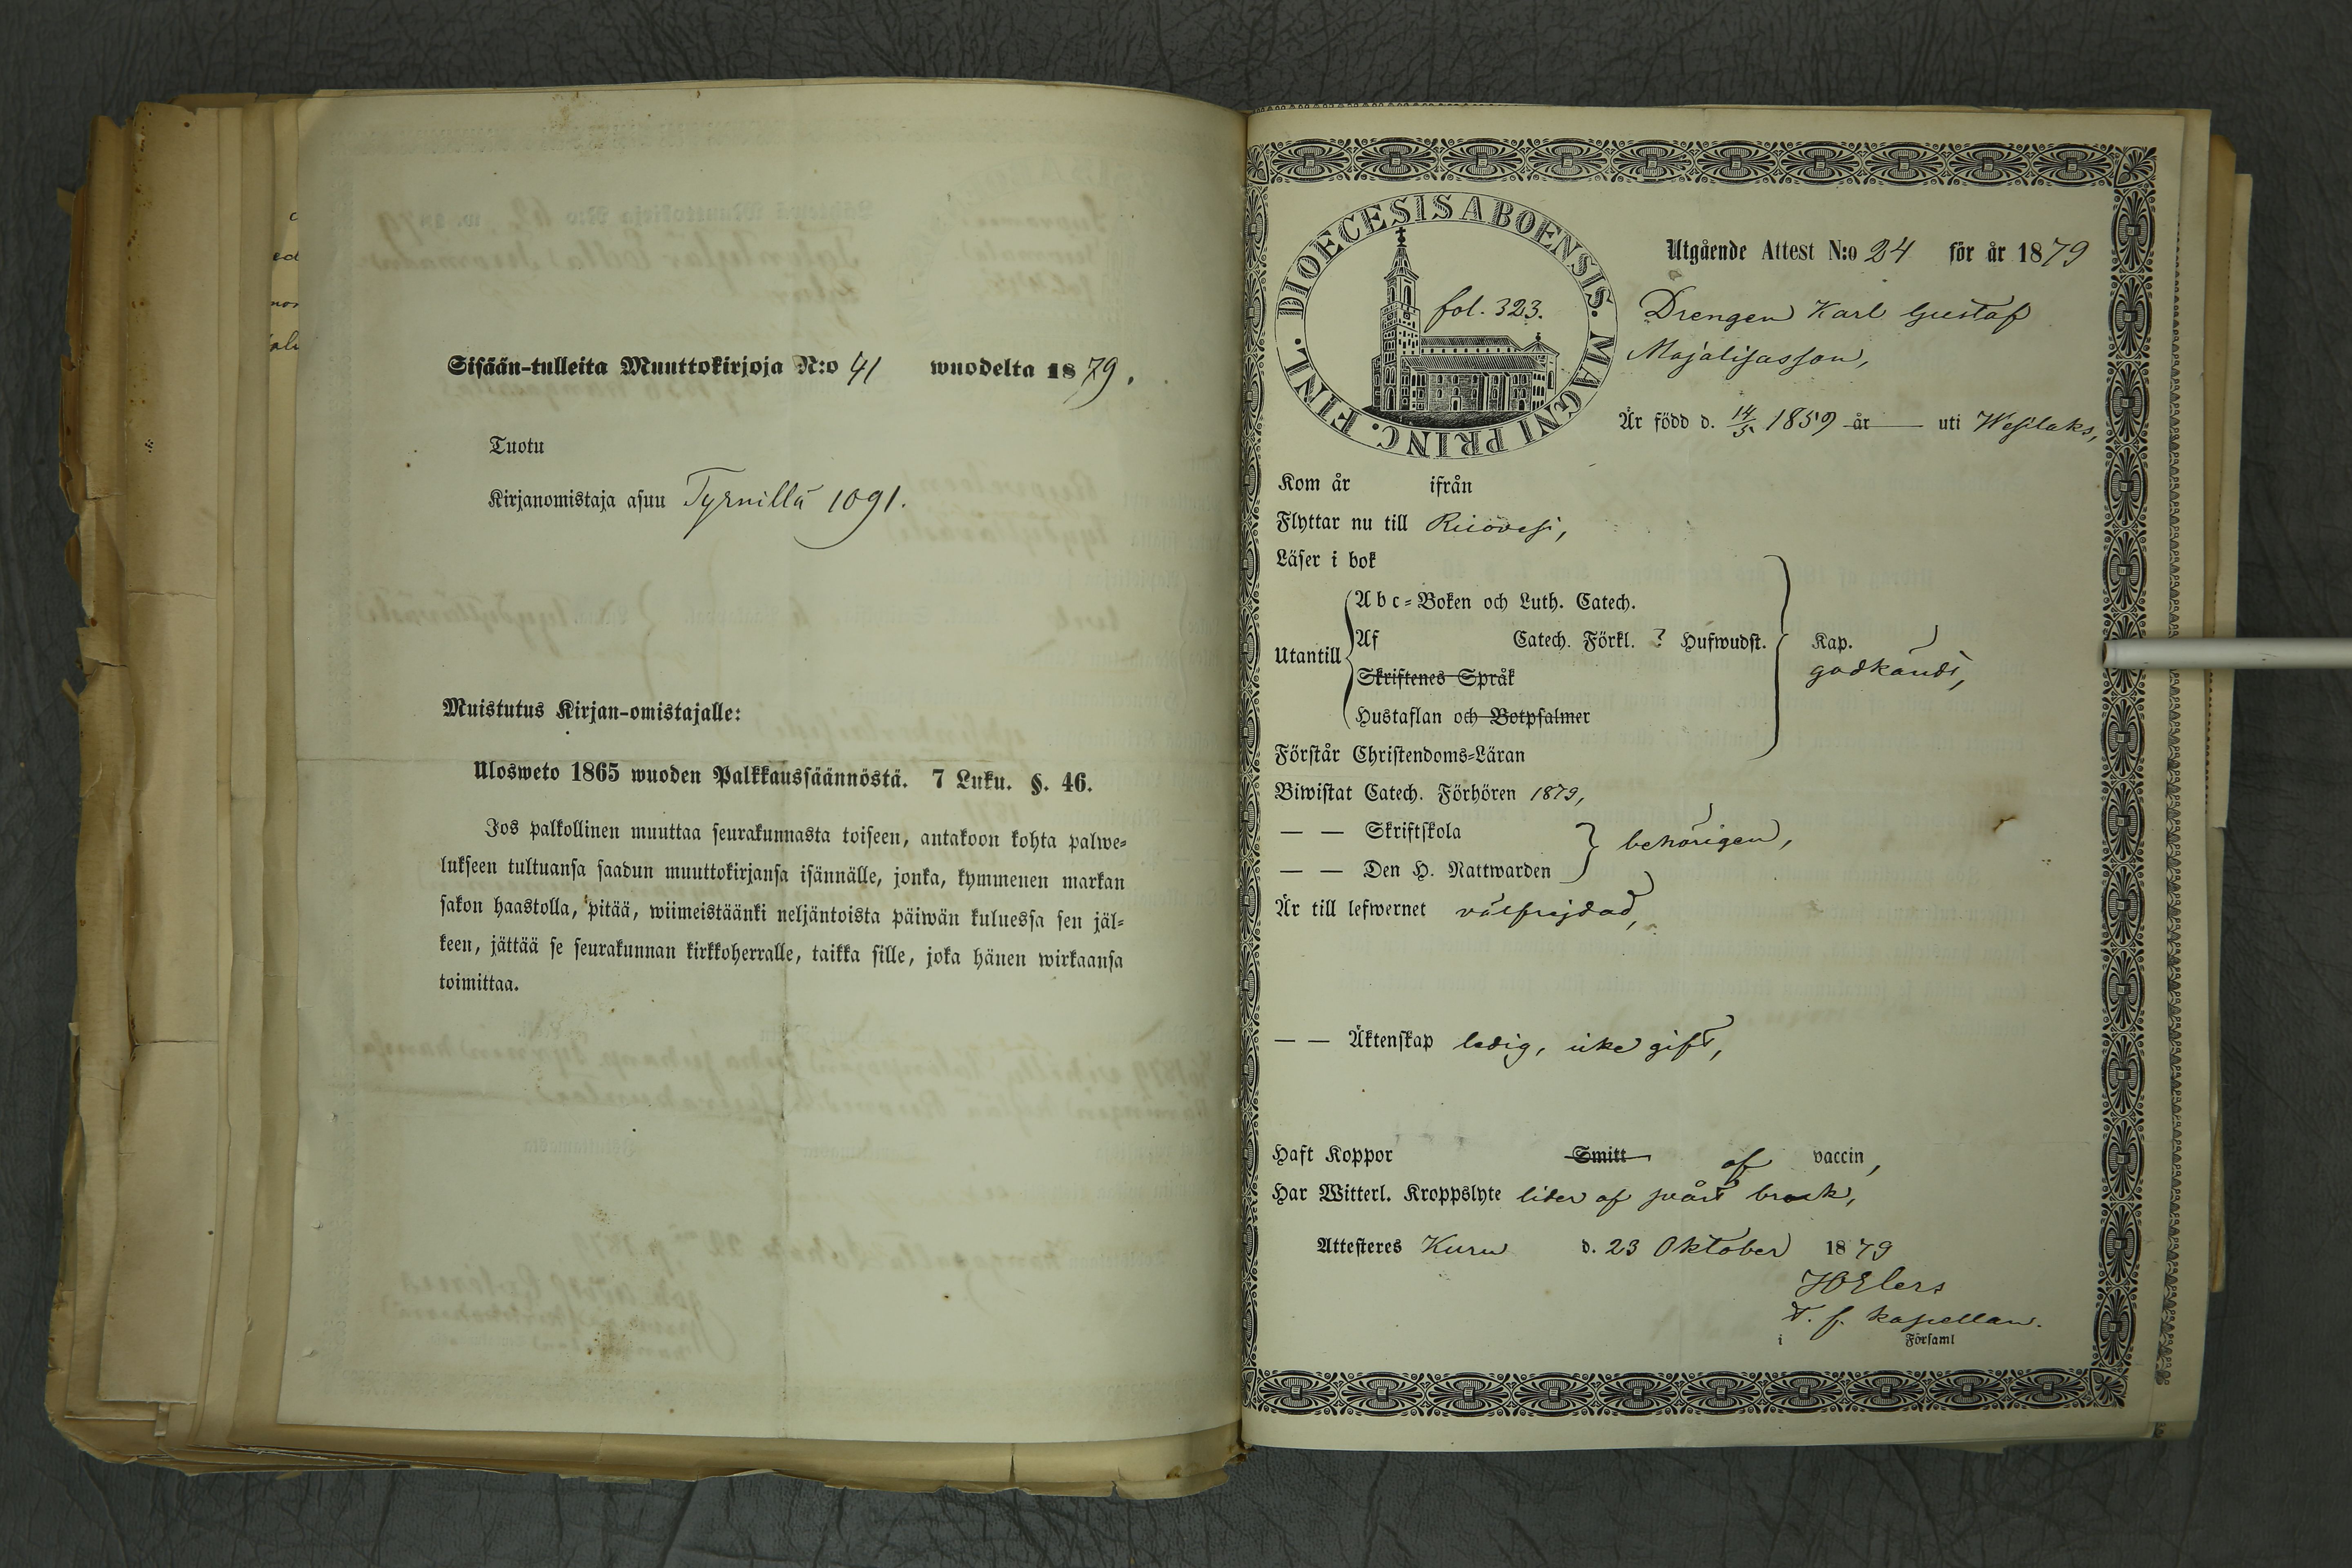 Sisään-tulleita Muuttokirjoja N:o 41 wuodelta 1879.
Tuotu
Kirjanomistaja asuu Tyrnillä 1091.
Muistutus Kirjan-omistajalle:
Ulosweto 1865 wuoden Palkkaussäännöstä. 7 Luku. §. 46.
Jos palkollinen muuttaa seurakunnasta toiseen, antakoon kohta palwe-
lukseen tultuansa saadun muuttokirjansa isännälle, jonka, kymmenen markan
sakon haastolla, pitää, wiimeistäänki neljäntoista päiwän kuluessa sen jäl-
keen, jättää se seurakunnan kirkkoherralle, taikka sille, joka hänen wirkaansa
toimittaa.
DIOECESIS ABOENSIS. MAGNI PRINC. FINL.
fol. 323.
Utgående Attest N:o 24 för år 1879
Drengen Karl Gustaf
Majalisasson,
Är född d. 14/5 1859 år uti Wesilaks,
Kom år ifrån
Flyttar nu till Ruovesi,
Läser i bok
Utantill
Abc-Boken och Luth. Catech.
Af Catech. Förkl. ? Hufwudst.
Kap.
godkändt,
Skriftenes Språk
Hustaflan och Botpsalmer
Förstår Christendoms-Läran
Biwistat Catech. Förhören 1879,
— — Skriftskola
behörigen,
— — Den H. Nattwarden
Är till lefwernet välfrejdad,
— — Äktenskap ledig, icke gift,
Haft Koppor Smitt af vaccin,
Har Witterl. Kroppslyte lider af svårt brock,
Attesteres Kuru d. 23 Oktober 1879
Elers
t. f. kapellan.
i Församl